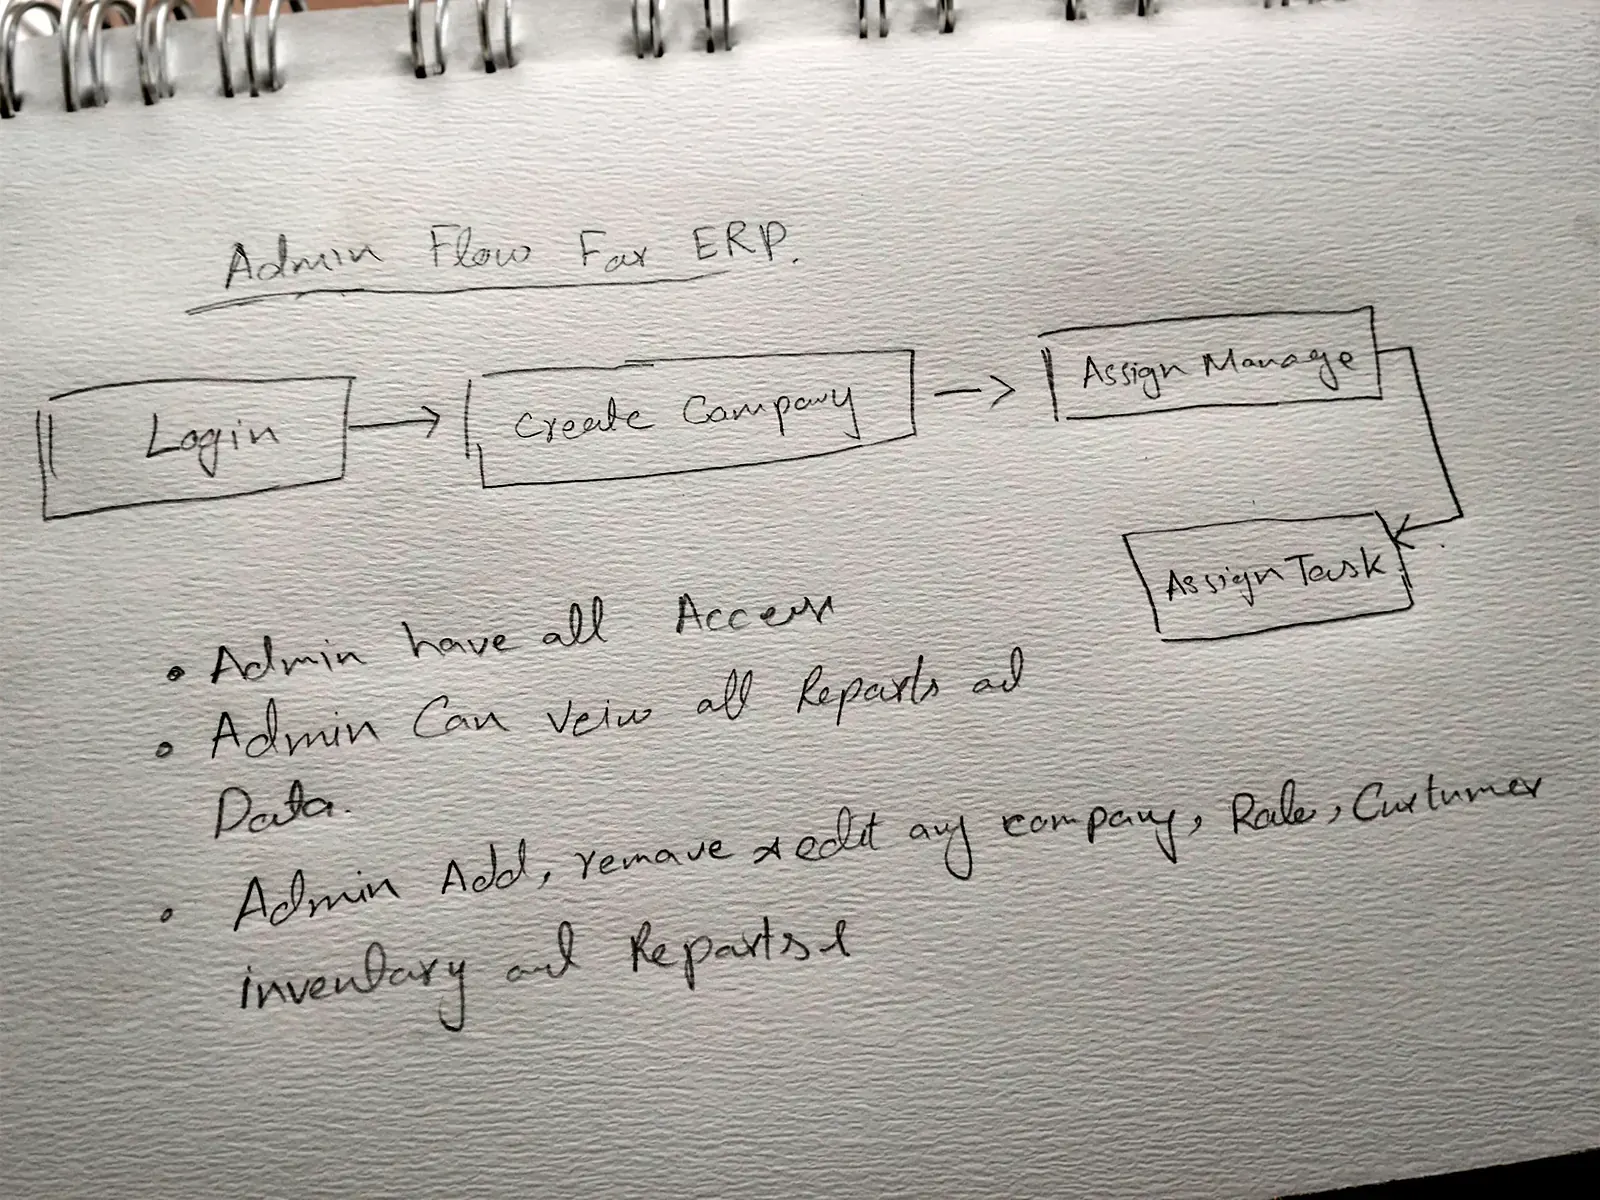 Admin Flow For ERP.
Login
Create Company
Assign Manage
Assign Task
• Admin have all Access
• Admin Can veiw all Reports ad
Data.
• Admin Add, remove & edit any company, Role, Custumer
inventory and Reports